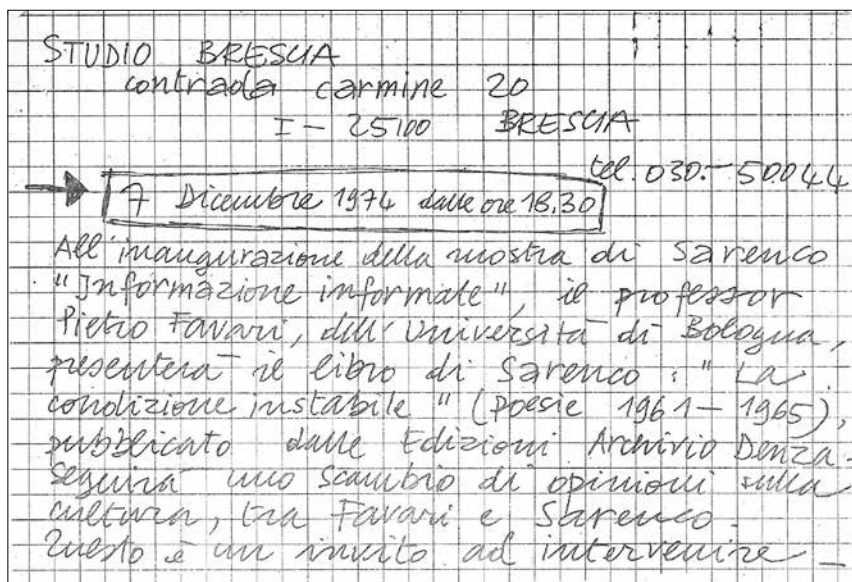 STUDIO BRESCIA
contrada carmine 20
I - 25100 BRESCIA
tel. 030.- 50044
7 Dicembre 1974 dalle ore 18.30
All'inaugurazione della mostra di Sarenco
"Informazione informale", il professor
Pietro Favari, dell'Università di Bologna,
presenterà il libro di Sarenco: "La
condizione instabile" (poesie 1961-1965),
pubblicato dalle Edizioni Archivio Denza.
Seguirà uno scambio di opinioni sulla
cultura, tra Favari e Sarenco.
Questo è un invito ad intervenire_